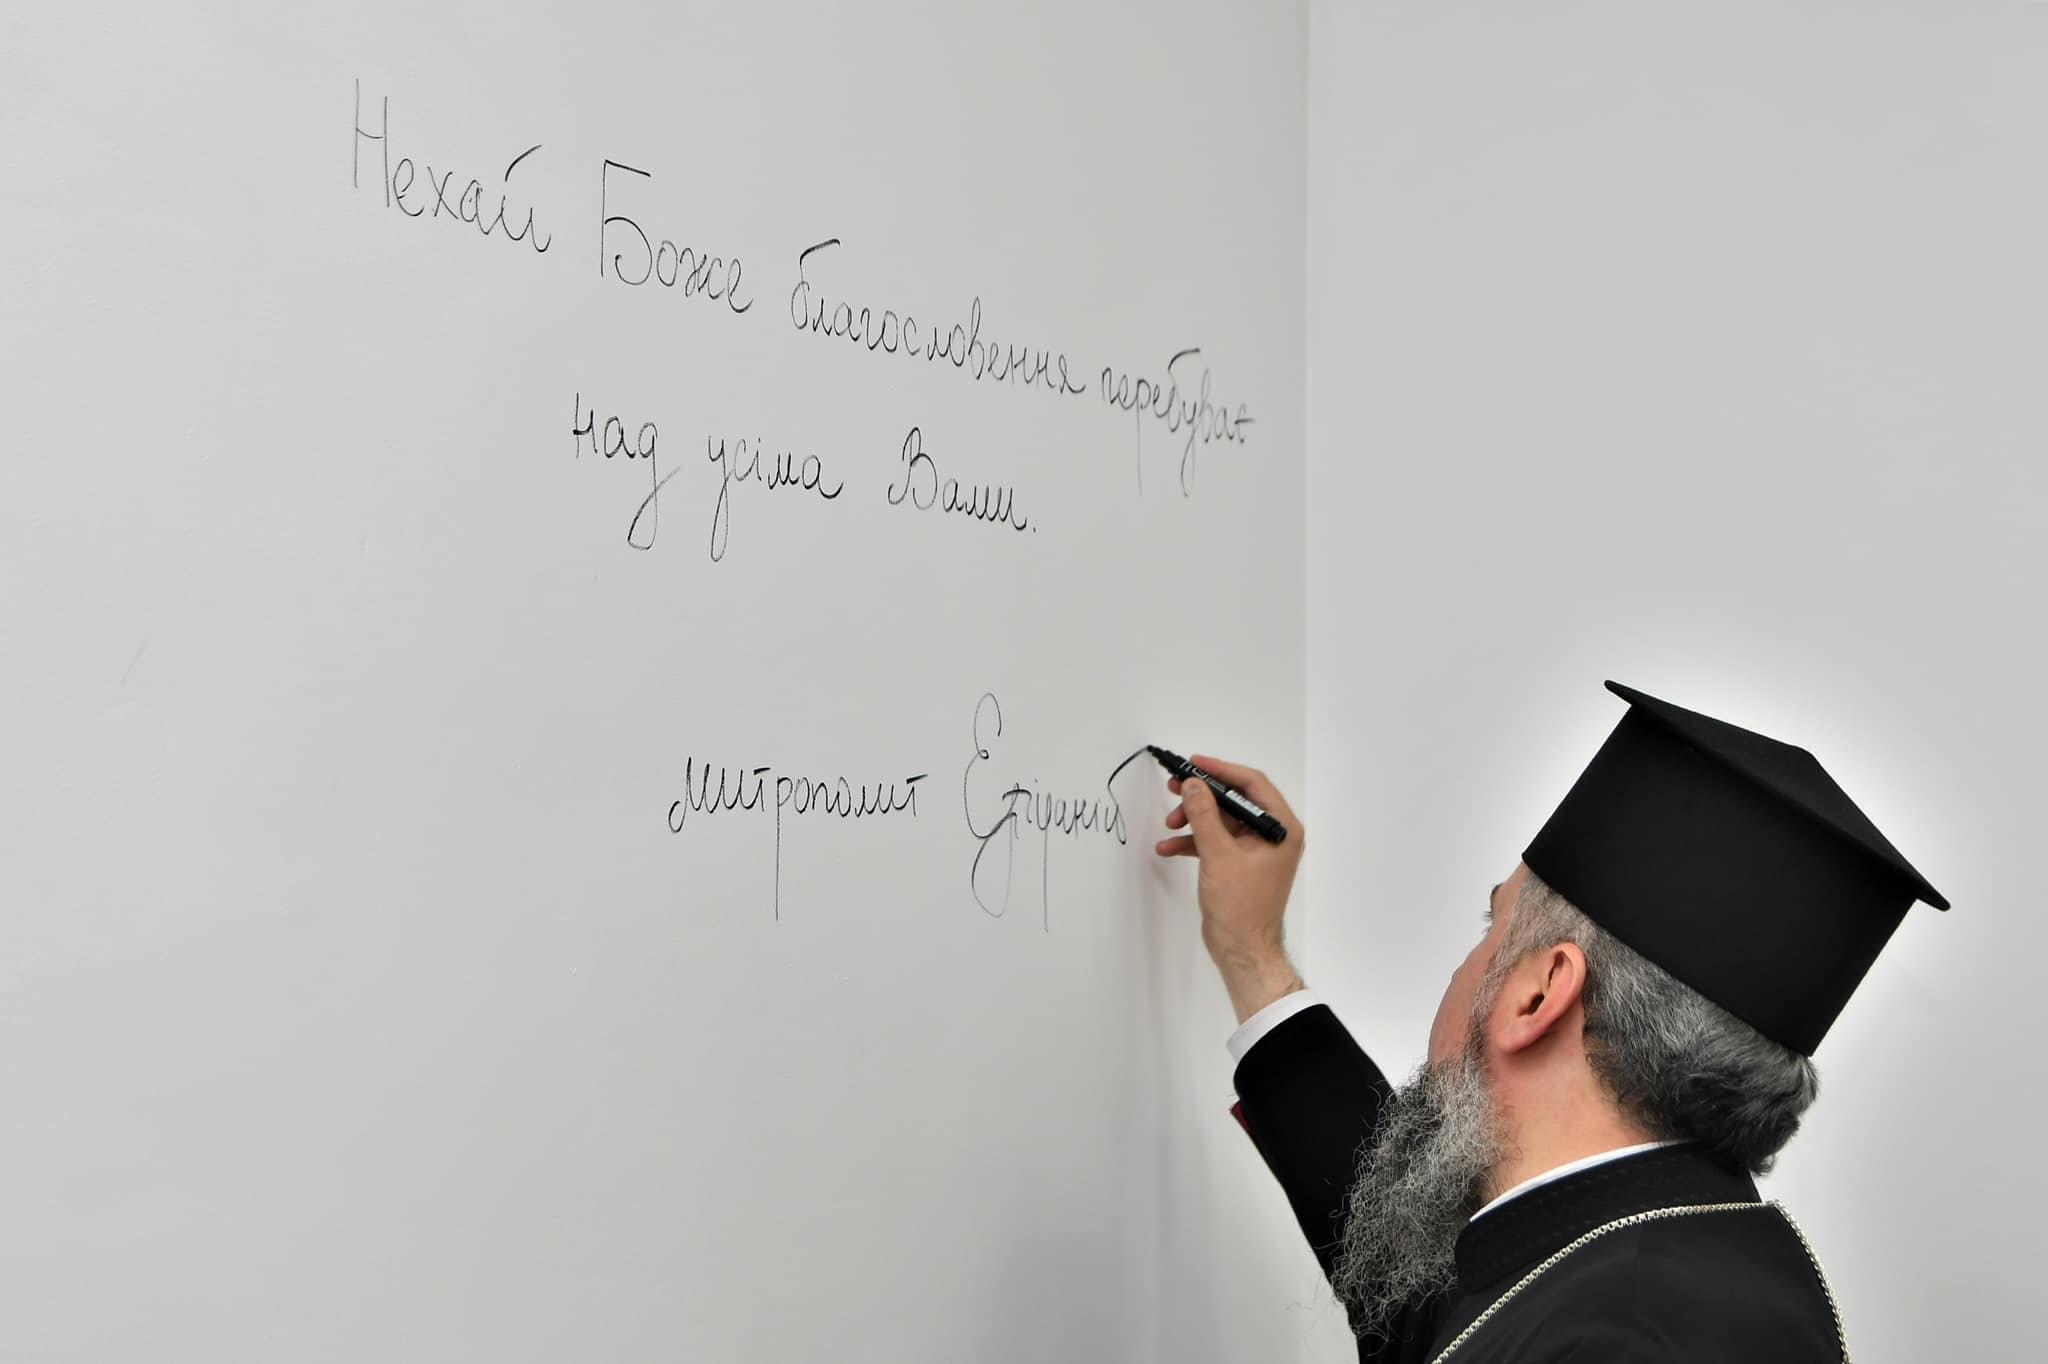 Нехай Боже благословення перебуває
над усіма Вами.
митрополит Епіфаній